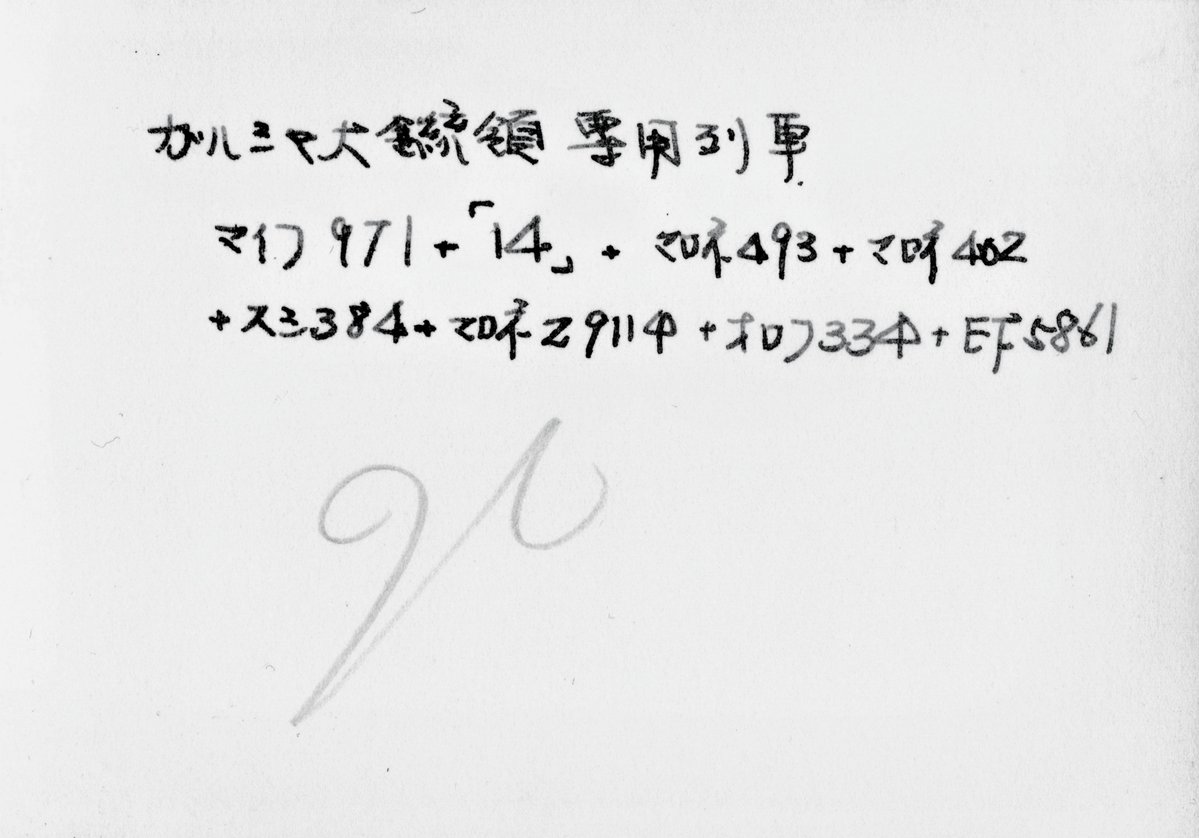 ガルシヤ大統領専用列車
マイフ971+「14」+マロネ493+マロネ402
+スシ384+マロネ29114+オロフ334+EF5861